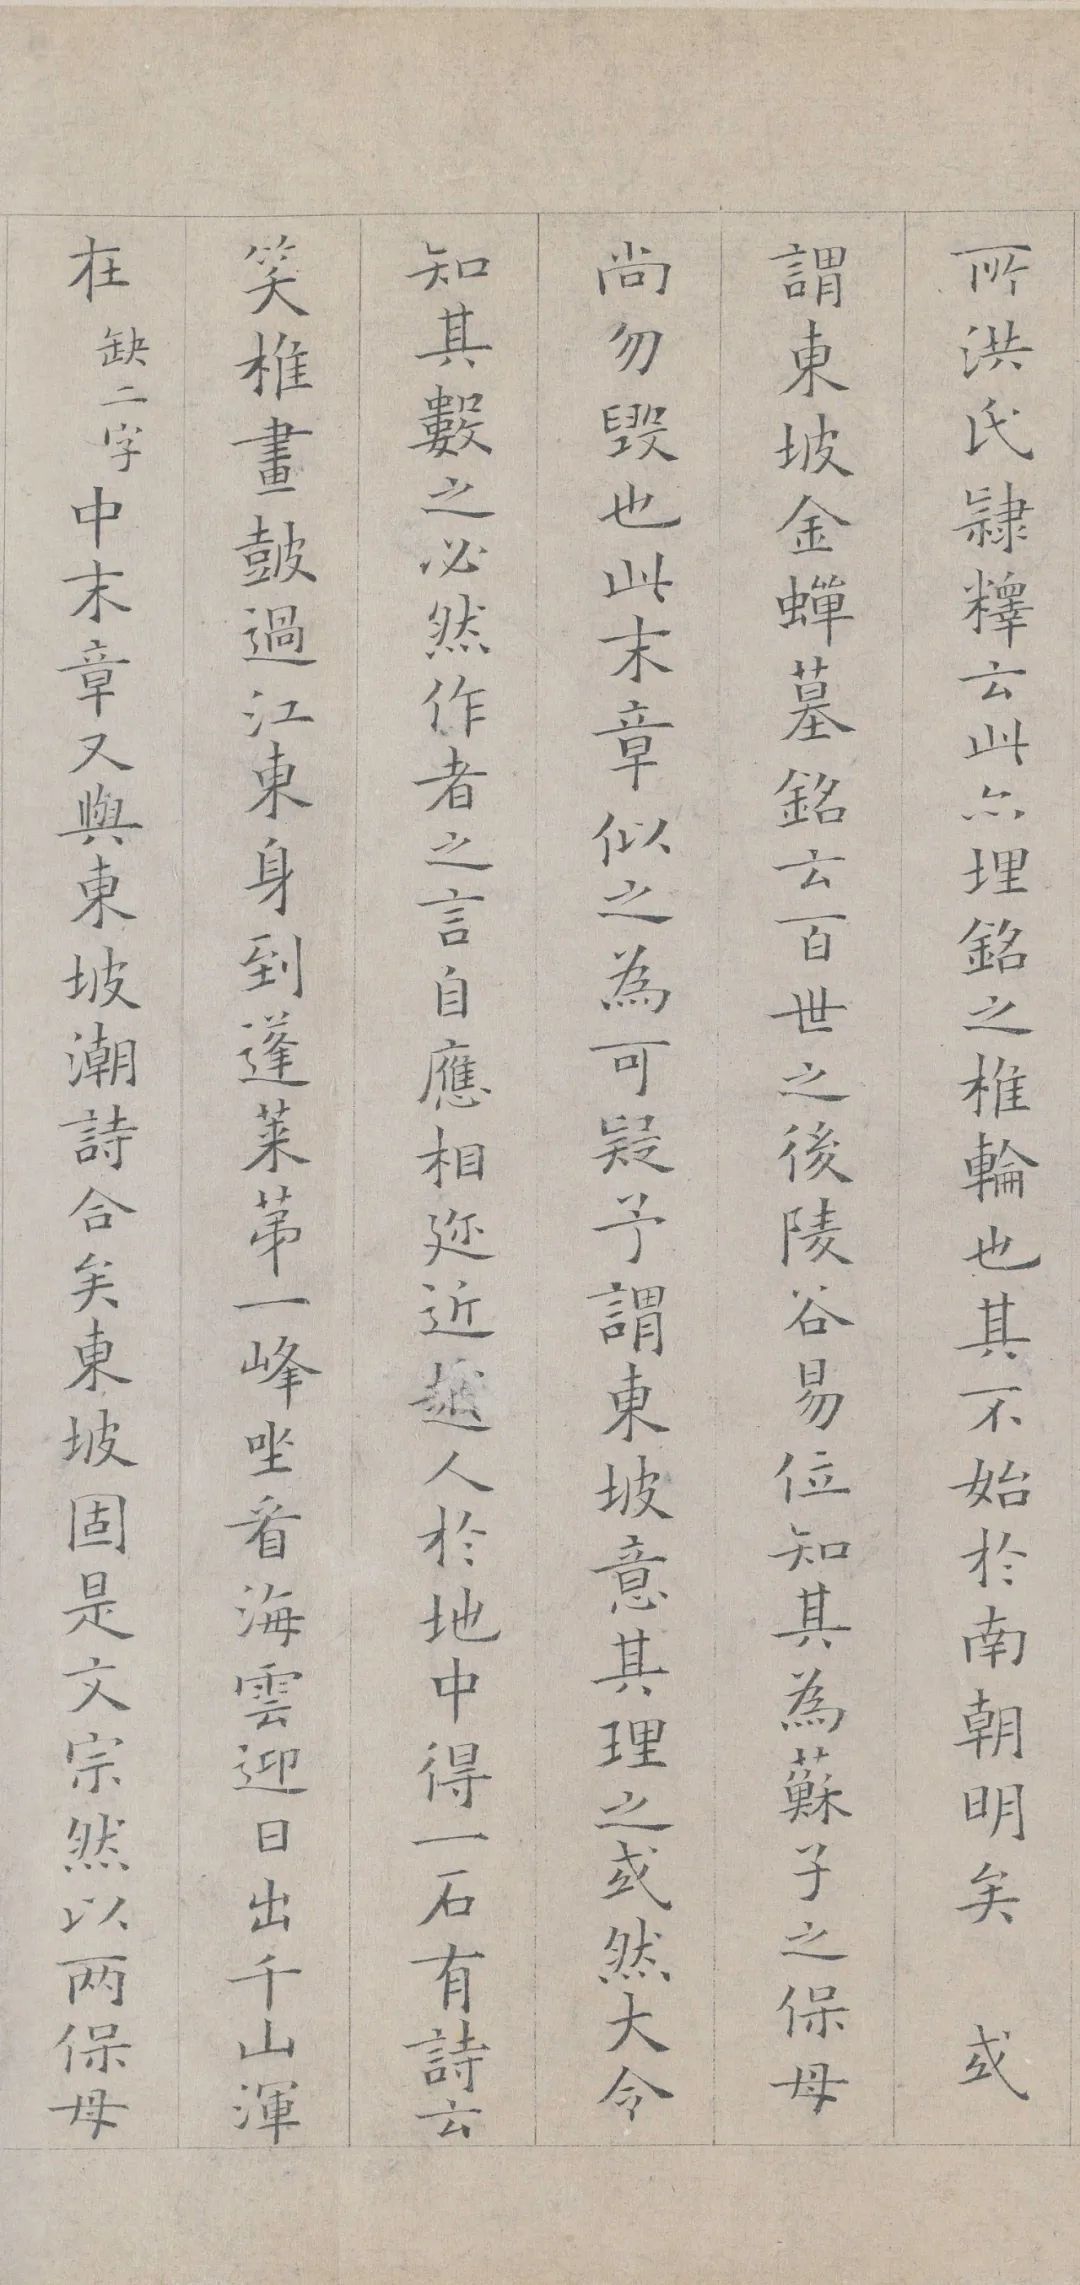 所洪氏隷釋云此亦埋銘之椎輪也其不始於南朝明矣 或
謂東坡金蟬墓銘云百世之後陵谷易位知其為蘇子之保母
尚勿毀也此末章似之為可疑予謂東坡意其理之或然大令
知其數之必然作者之言自應相迩近越人於地中得一石有詩云
笑椎畫鼓過江東身到蓬萊苐一峰坐看海雲迎日出千山渾
在 缺二字 中末章又與東坡潮詩合矣東坡固是文宗然以两保母